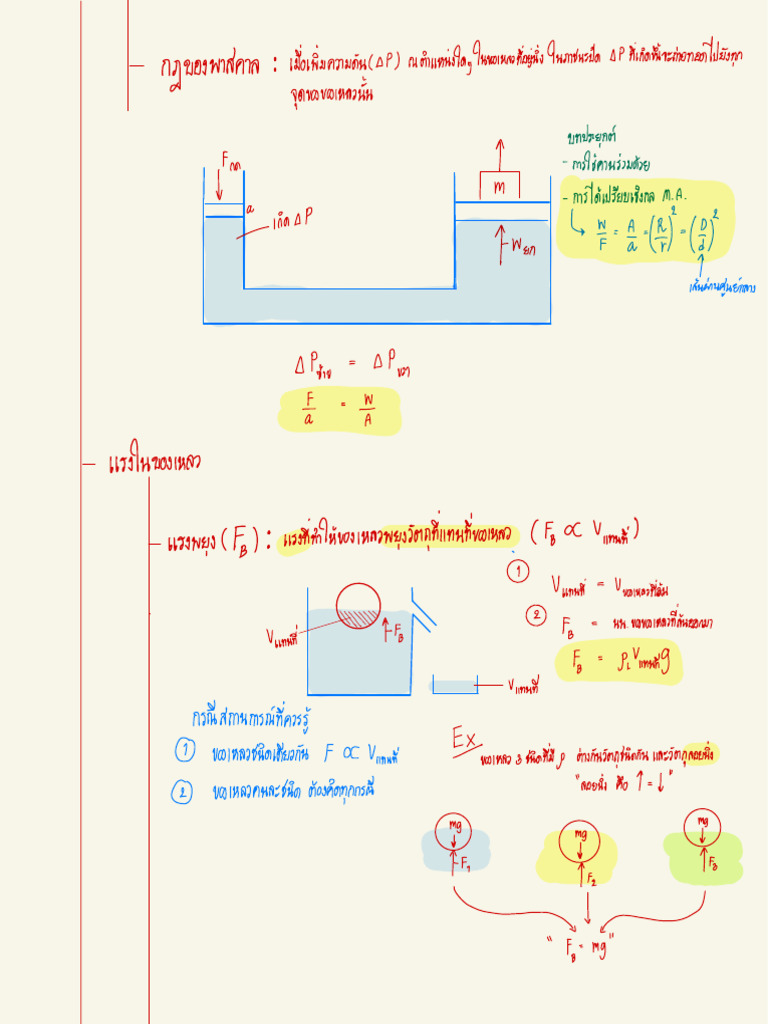 กฎของพาสคาล : เมื่อเพิ่มความดัน (ΔP) ณ ตำแหน่งใดๆ ในของเหลวที่อยู่นิ่ง ในภาชนะปิด ΔP ที่เกิดขึ้นจะถ่ายทอดไปยังทุก
จุดของของเหลวนั้น
บทประยุกต์
- การใช้คานร่วมด้วย
- การได้เปรียบเชิงกล M.A.
W/F = A/a = (R/r)² = (D/d)²
เส้นผ่านศูนย์กลาง
F กด
a
เกิด ΔP
m
W ยก
ΔP ซ้าย = ΔP ขวา
F/a = W/A
แรงในของเหลว
แรงพยุง (F_B) : แรงที่ทำให้ของเหลวพยุงวัตถุที่แทนที่ของเหลว (F_B ∝ V แทนที่)
① V แทนที่ = V ของเหลวที่ล้น
② F_B = นน. ของของเหลวที่ล้นออกมา
F_B = ρ_L V แทนที่ g
V แทนที่
F_B
V แทนที่
กรณีสถานการณ์ที่ควรรู้
① ของเหลวชนิดเดียวกัน F ∝ V แทนที่
② ของเหลวคนละชนิด ต้องคิดทุกกรณี
Ex ของเหลว 3 ชนิดที่มี ρ ต่างกันวัตถุชนิดกัน และวัตถุลอยนิ่ง
"ลอยนิ่ง คือ ↑ = ↓"
mg
F₁
mg
F₂
mg
F₃
"F_B = mg"